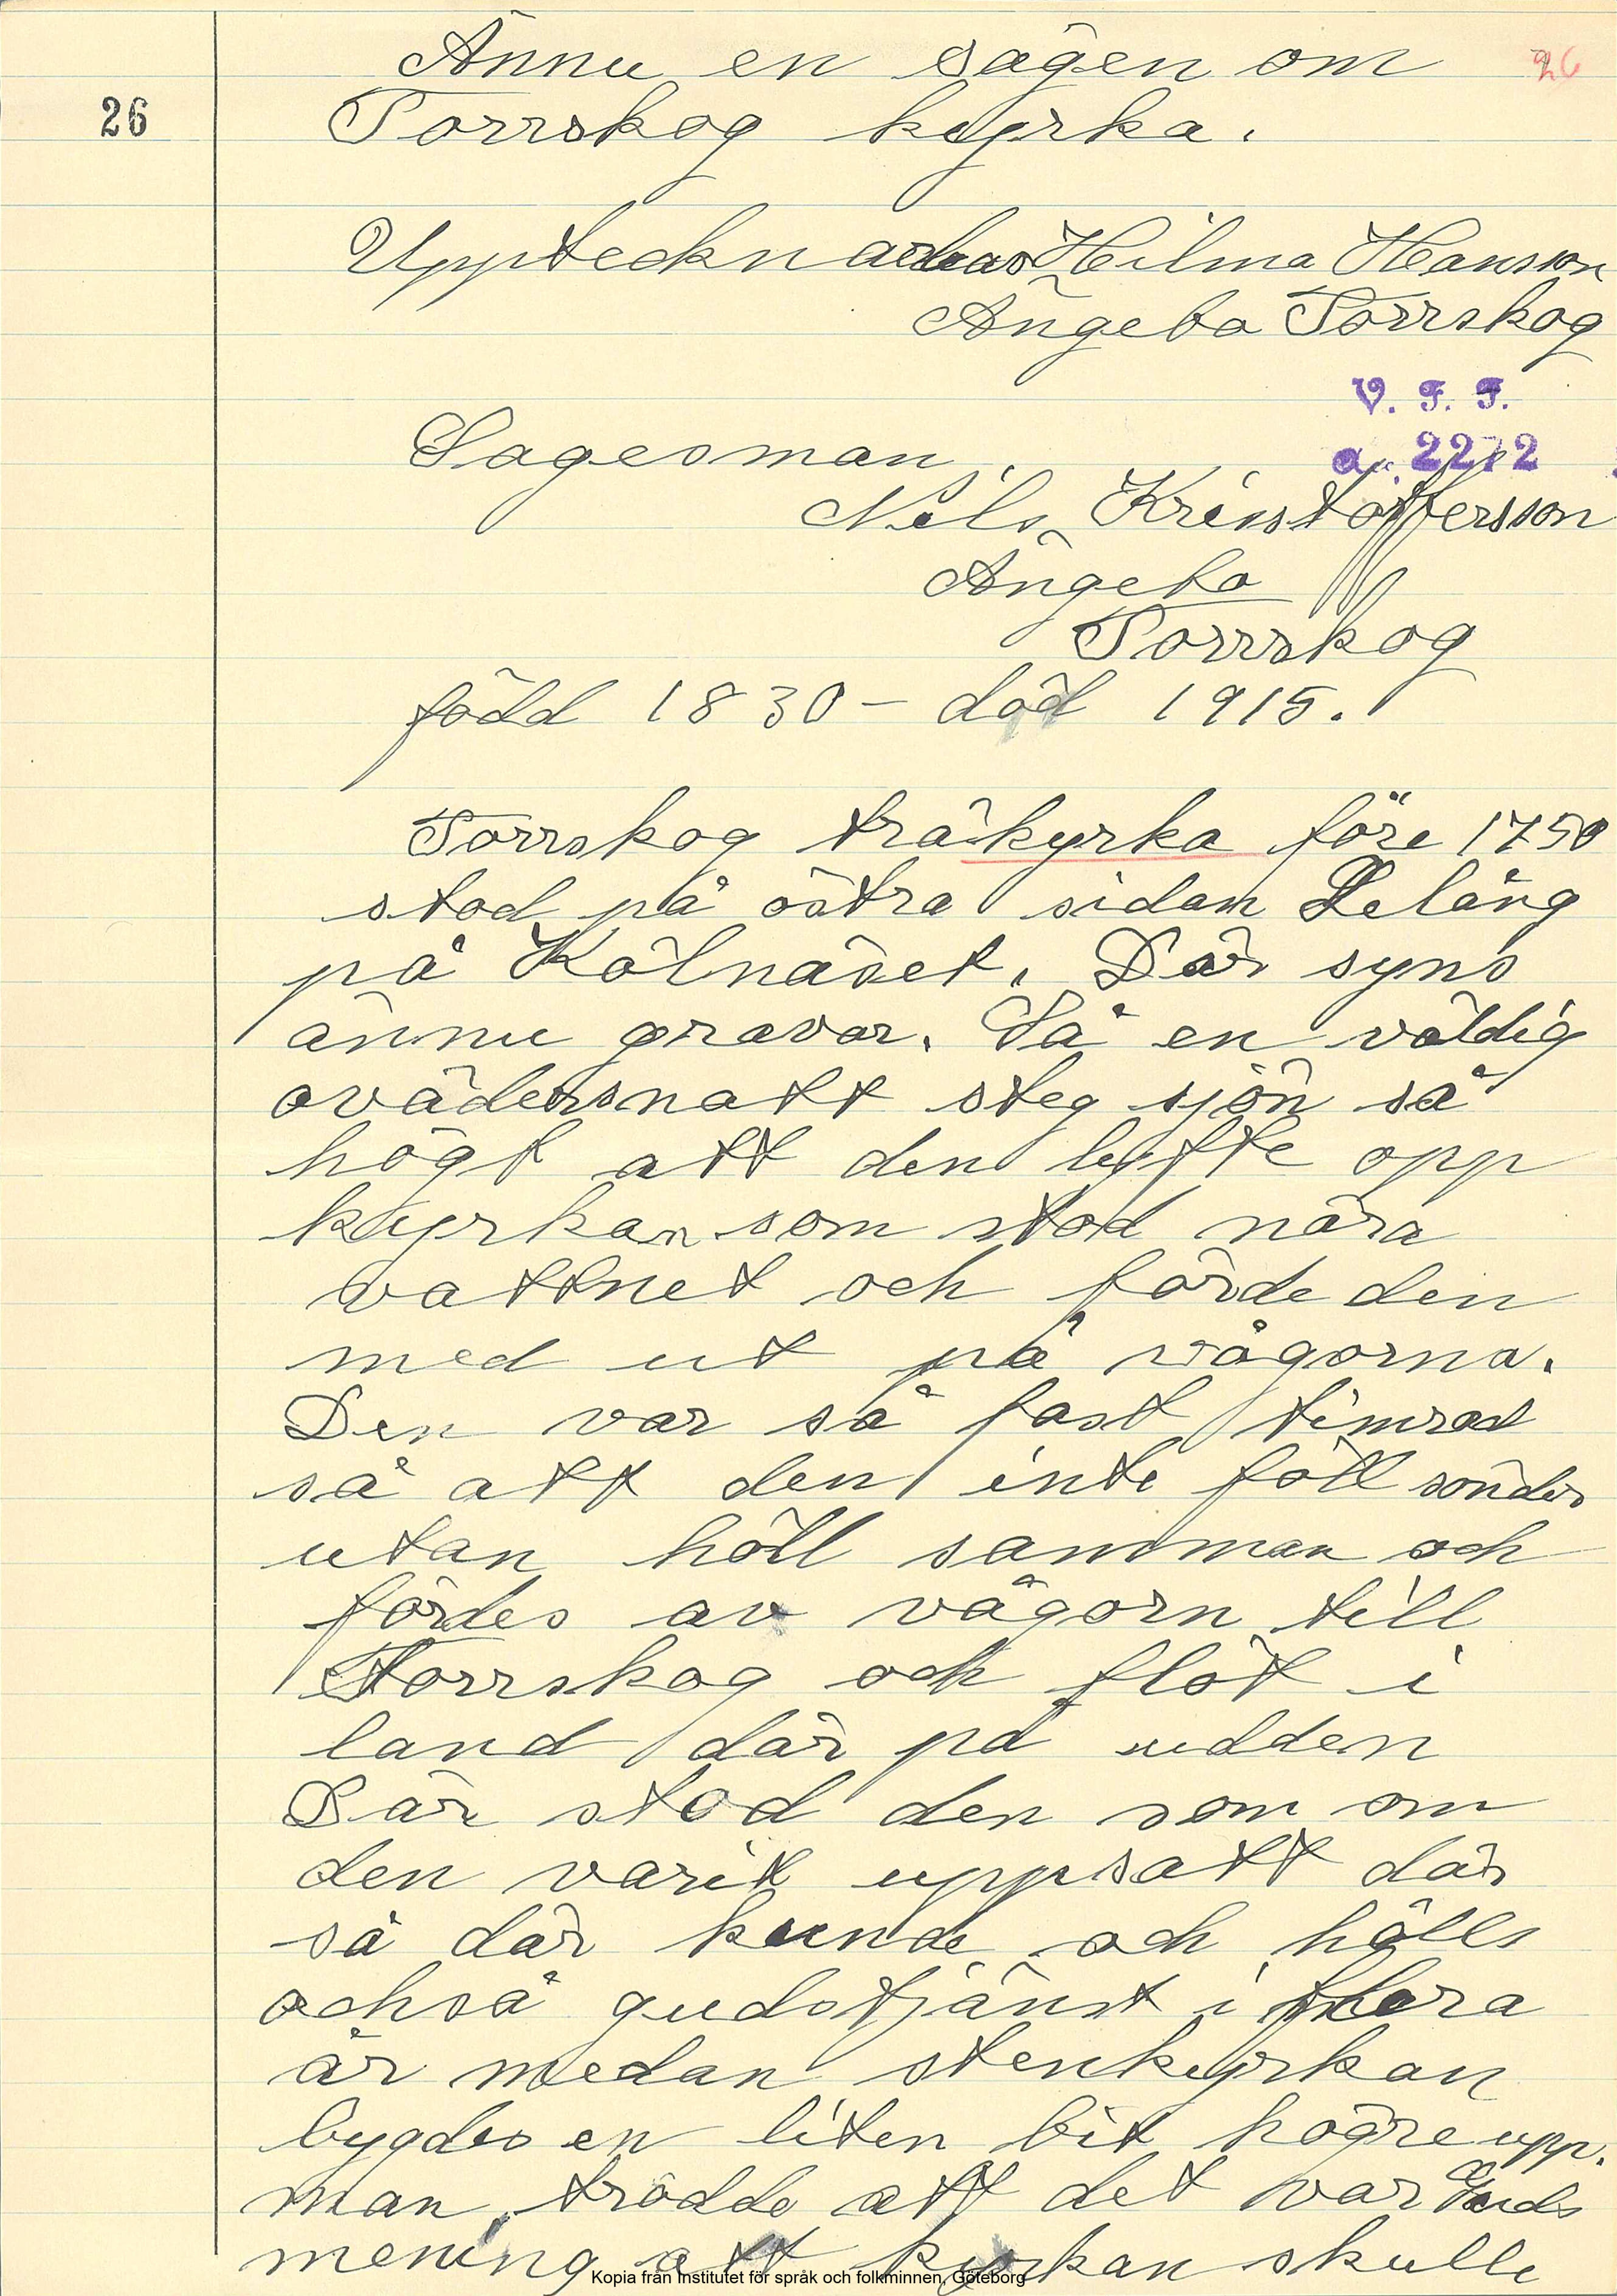 Ännu en sägen om 26
26 Torrskog kyrka.
Upptecknad av Hilma Hansson
Ängebo Torrskog
V. F. F.
Sagesman a. 2272
Nils Kristoffersson
Ängebo
Torrskog
född 1830 – död 1915.
Torrskog träkyrka före 1750
stod på östra sidan Lelång
på Kölnäset. Där syns
ännu gravar. Så en väldig
ovädersnatt steg sjön så
högt att den lyfte opp
kyrkan som stod nära
vattnet och förde den
med ut på vågorna.
Den var så fast timrad
så att den inte föll sönder
utan höll samman och
fördes av vågorn till
Torrskog och flöt i
land där på udden
Där stod den som om
den varit uppsatt där
så där kunde och hölls
också gudstjänst i flera
år medan stenkyrkan
bygdes en liten bit högre upp.
man trodde att det var Guds
mening att kyrkan skulle
Kopia från Institutet för språk och folkminnen, Göteborg